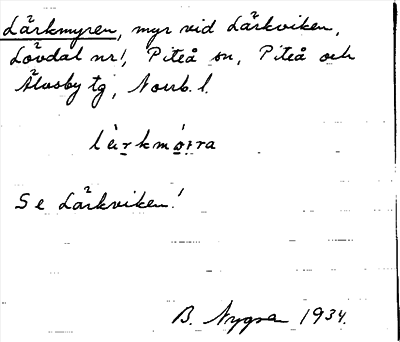 Lärkmyren, myr vid Lärkviken,
Lövdal nr 1, Piteå sn, Piteå och
Älvsby tg, Norrb. l.
lärkmøra
Se Lärkviken!
B. Nygren 1934.